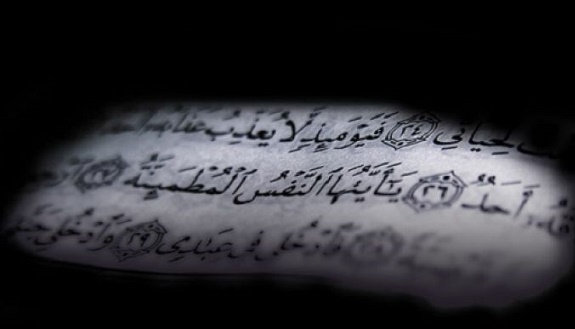 لِحَيَاتِي ٢٤ فَيَوْمَئِذٍ لَّا يُعَذِّبُ
أَحَدٌ ٢٦ يَٰٓأَيَّتُهَا ٱلنَّفْسُ ٱلْمُطْمَئِنَّةُ ٢٧
فَٱدْخُلِي فِي عِبَٰدِي ٢٩ وَٱدْخُلِي